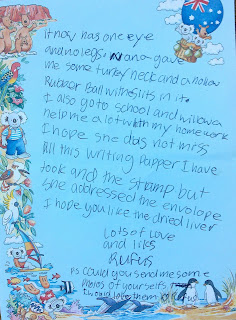 it now has one eye
and no legs. Nana gave
me some turkey neck and a hollow
Rubber Ball with slits in it.
I also go to school and
help me a lot with my home work
I hope she das not miss
All this writing Papper I have
took and the stamp but
she addressed the envelope
I hope you like the dried liver
Lots of Love
and liks
Rufus
Ps could you send me some
Photos of yourselfs
I would love them Rufus